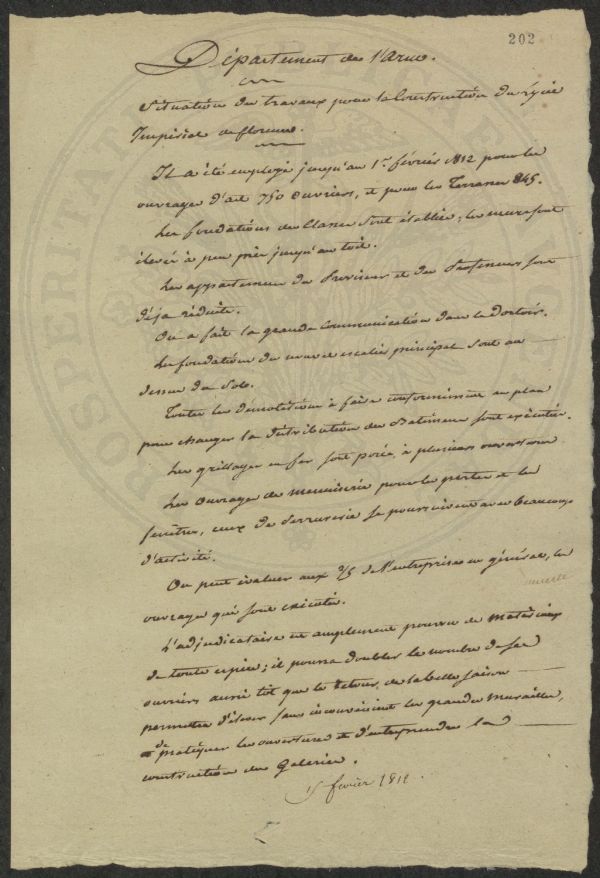 202
Département de l'Arno.
Situation des travaux pour la Construction du Lycée
Impérial de florence.
Il a été employé jusqu'au 1er février 1812 pour les
ouvrages d'art 750 ouvriers, et pour les Terrasses 845.
Les fondations des Classes sont établies, les murs sont
élevés à peu près jusqu'au toit.
Les appartemens du Proviseur et des Professeurs sont
déja réduits.
On a fait la grande Communication dans le Dortoir.
Les fondations du nouvel escalier principal sont au
dessus du Sol.
Toutes les démolitions à faire conformément au plan
pour changer la distribution des Batimens sont exécutées.
Les grillages en fer sont posés à plusieurs ouvertures
Les ouvrages de menuiserie pour les portes et les
fenêtres, ceux de Serrurerie se poursuivent avec beaucoup
d'activité.
On peut évaluer aux 2/5 de l'entreprise en général, les
ouvrages qui sont exécutés.
L'adjudicataire est amplement pourvu de matériaux
de toute espèce; il pourra doubler le nombre de ses
ouvriers aussi tôt que le retour de la belle saison
permettra d'élever sans inconvénient les grandes murailles,
de pratiquer les ouvertures et d'entreprendre la
construction des Galeries.
février 1812.
ROSPERITATI PUBLICAE AUG